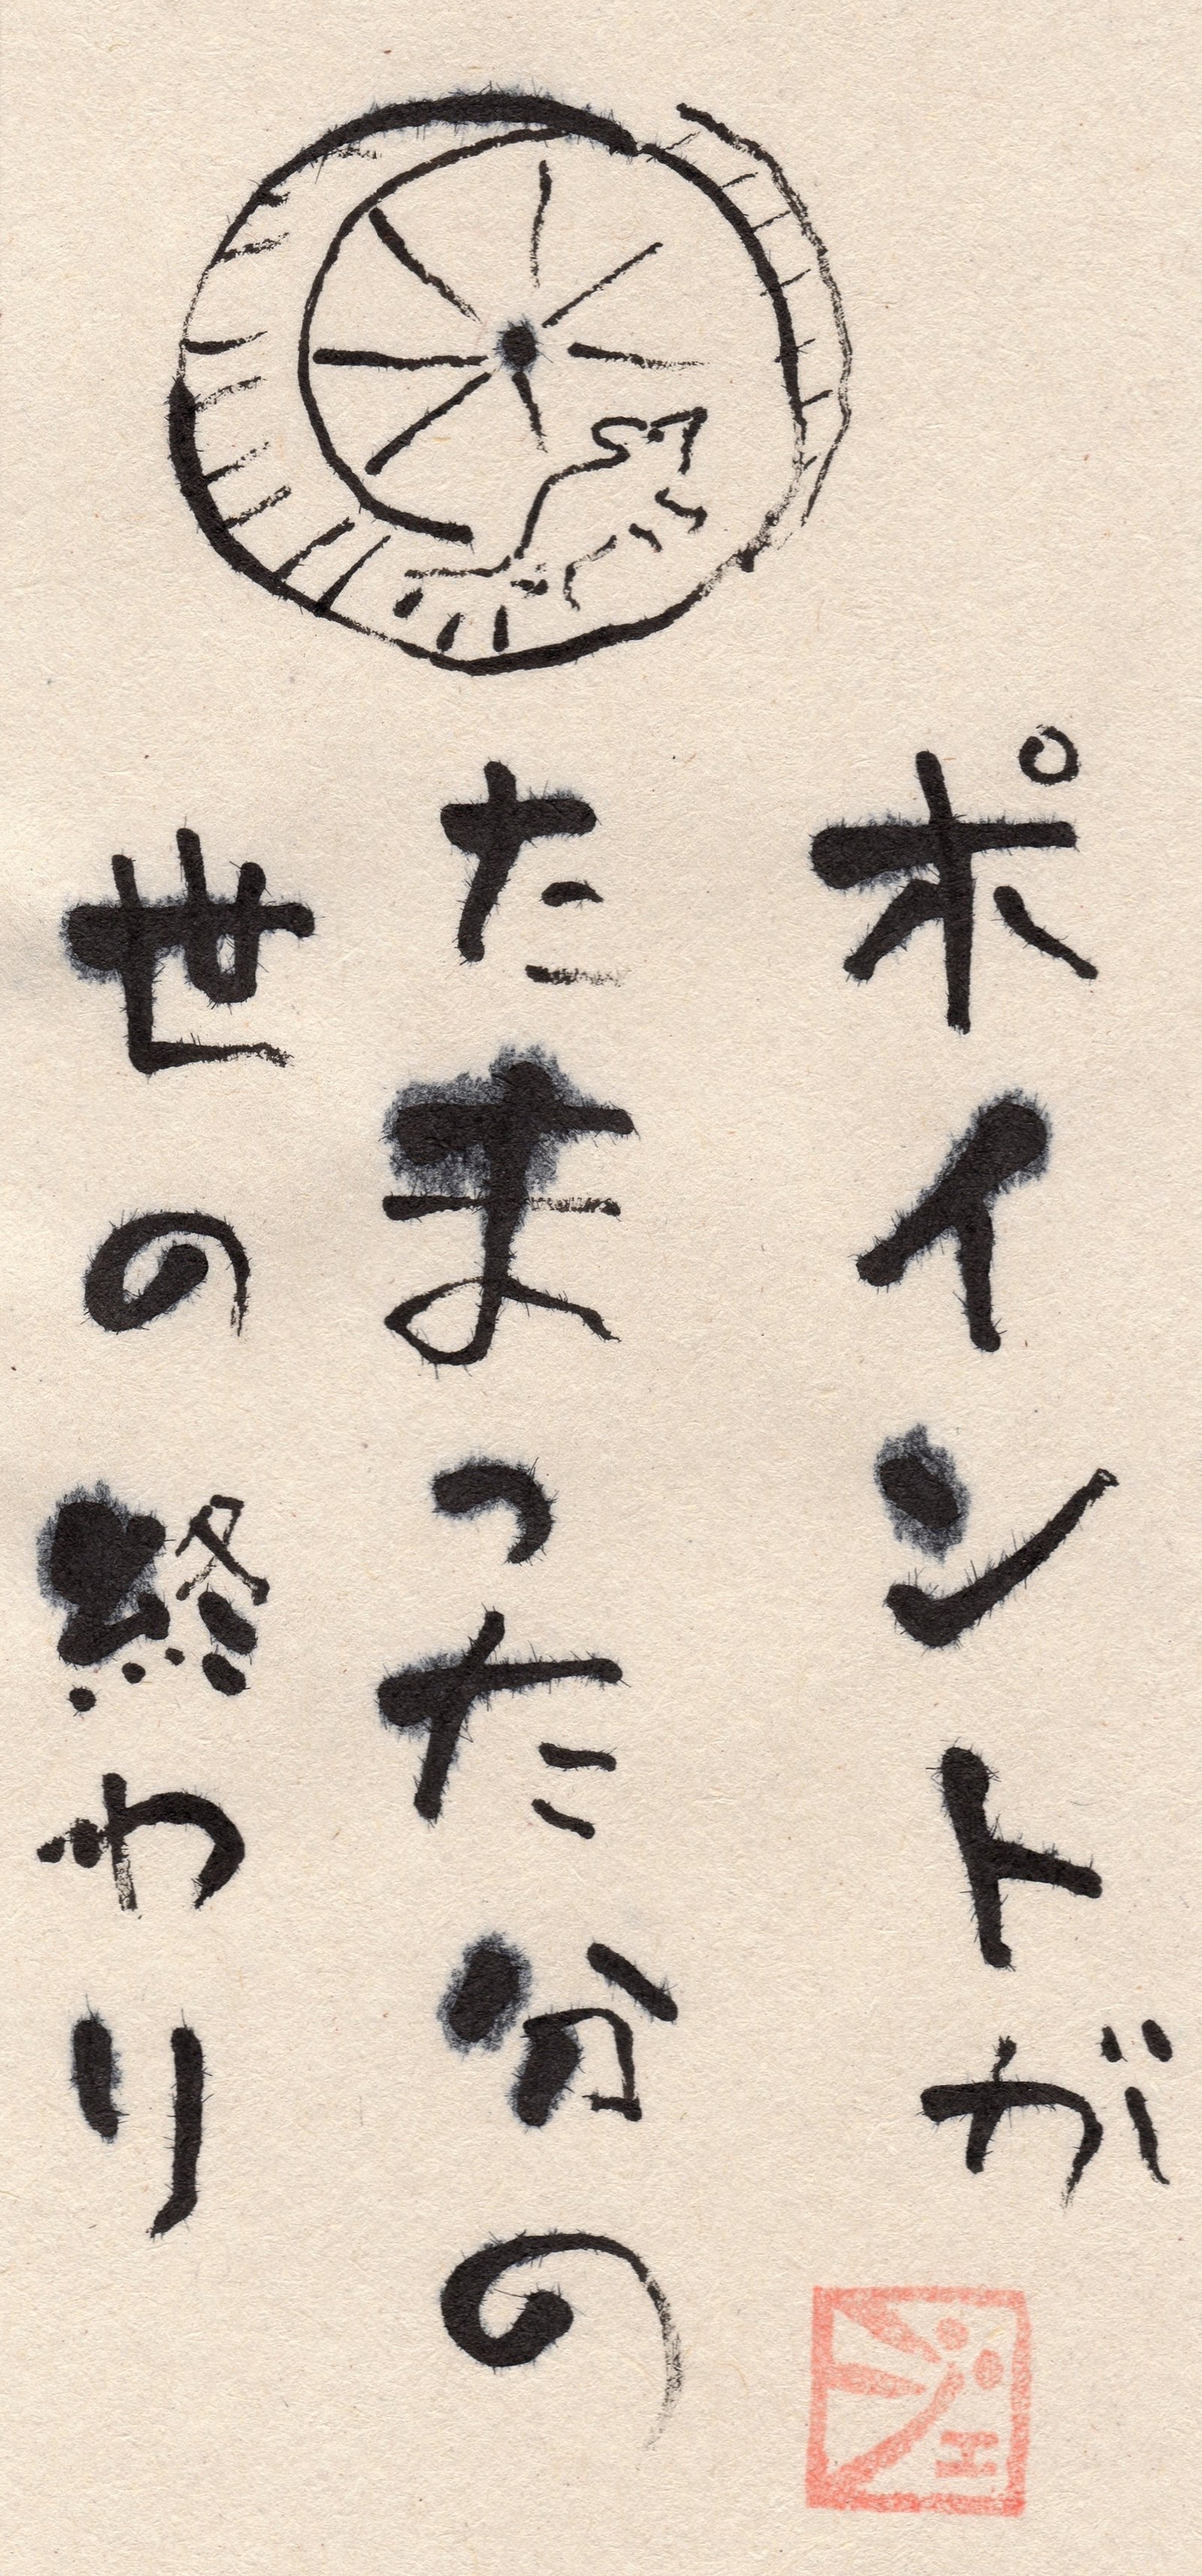 ポイントが
たまった分の
世の終わり